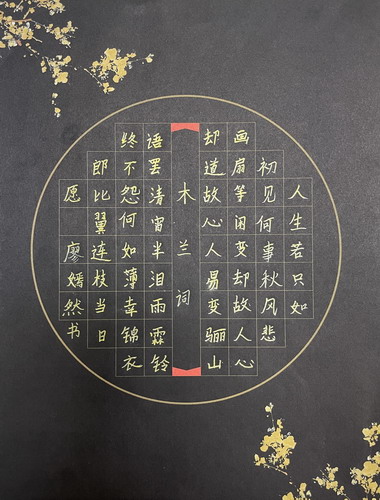 人生若只如
初见何事秋风悲
画扇等闲变却故人心
却道故心人易变骊山
木兰词
语罢清宵半泪雨霖铃
终不怨何如薄幸锦衣
郎比翼连枝当日
愿
廖嫣然书